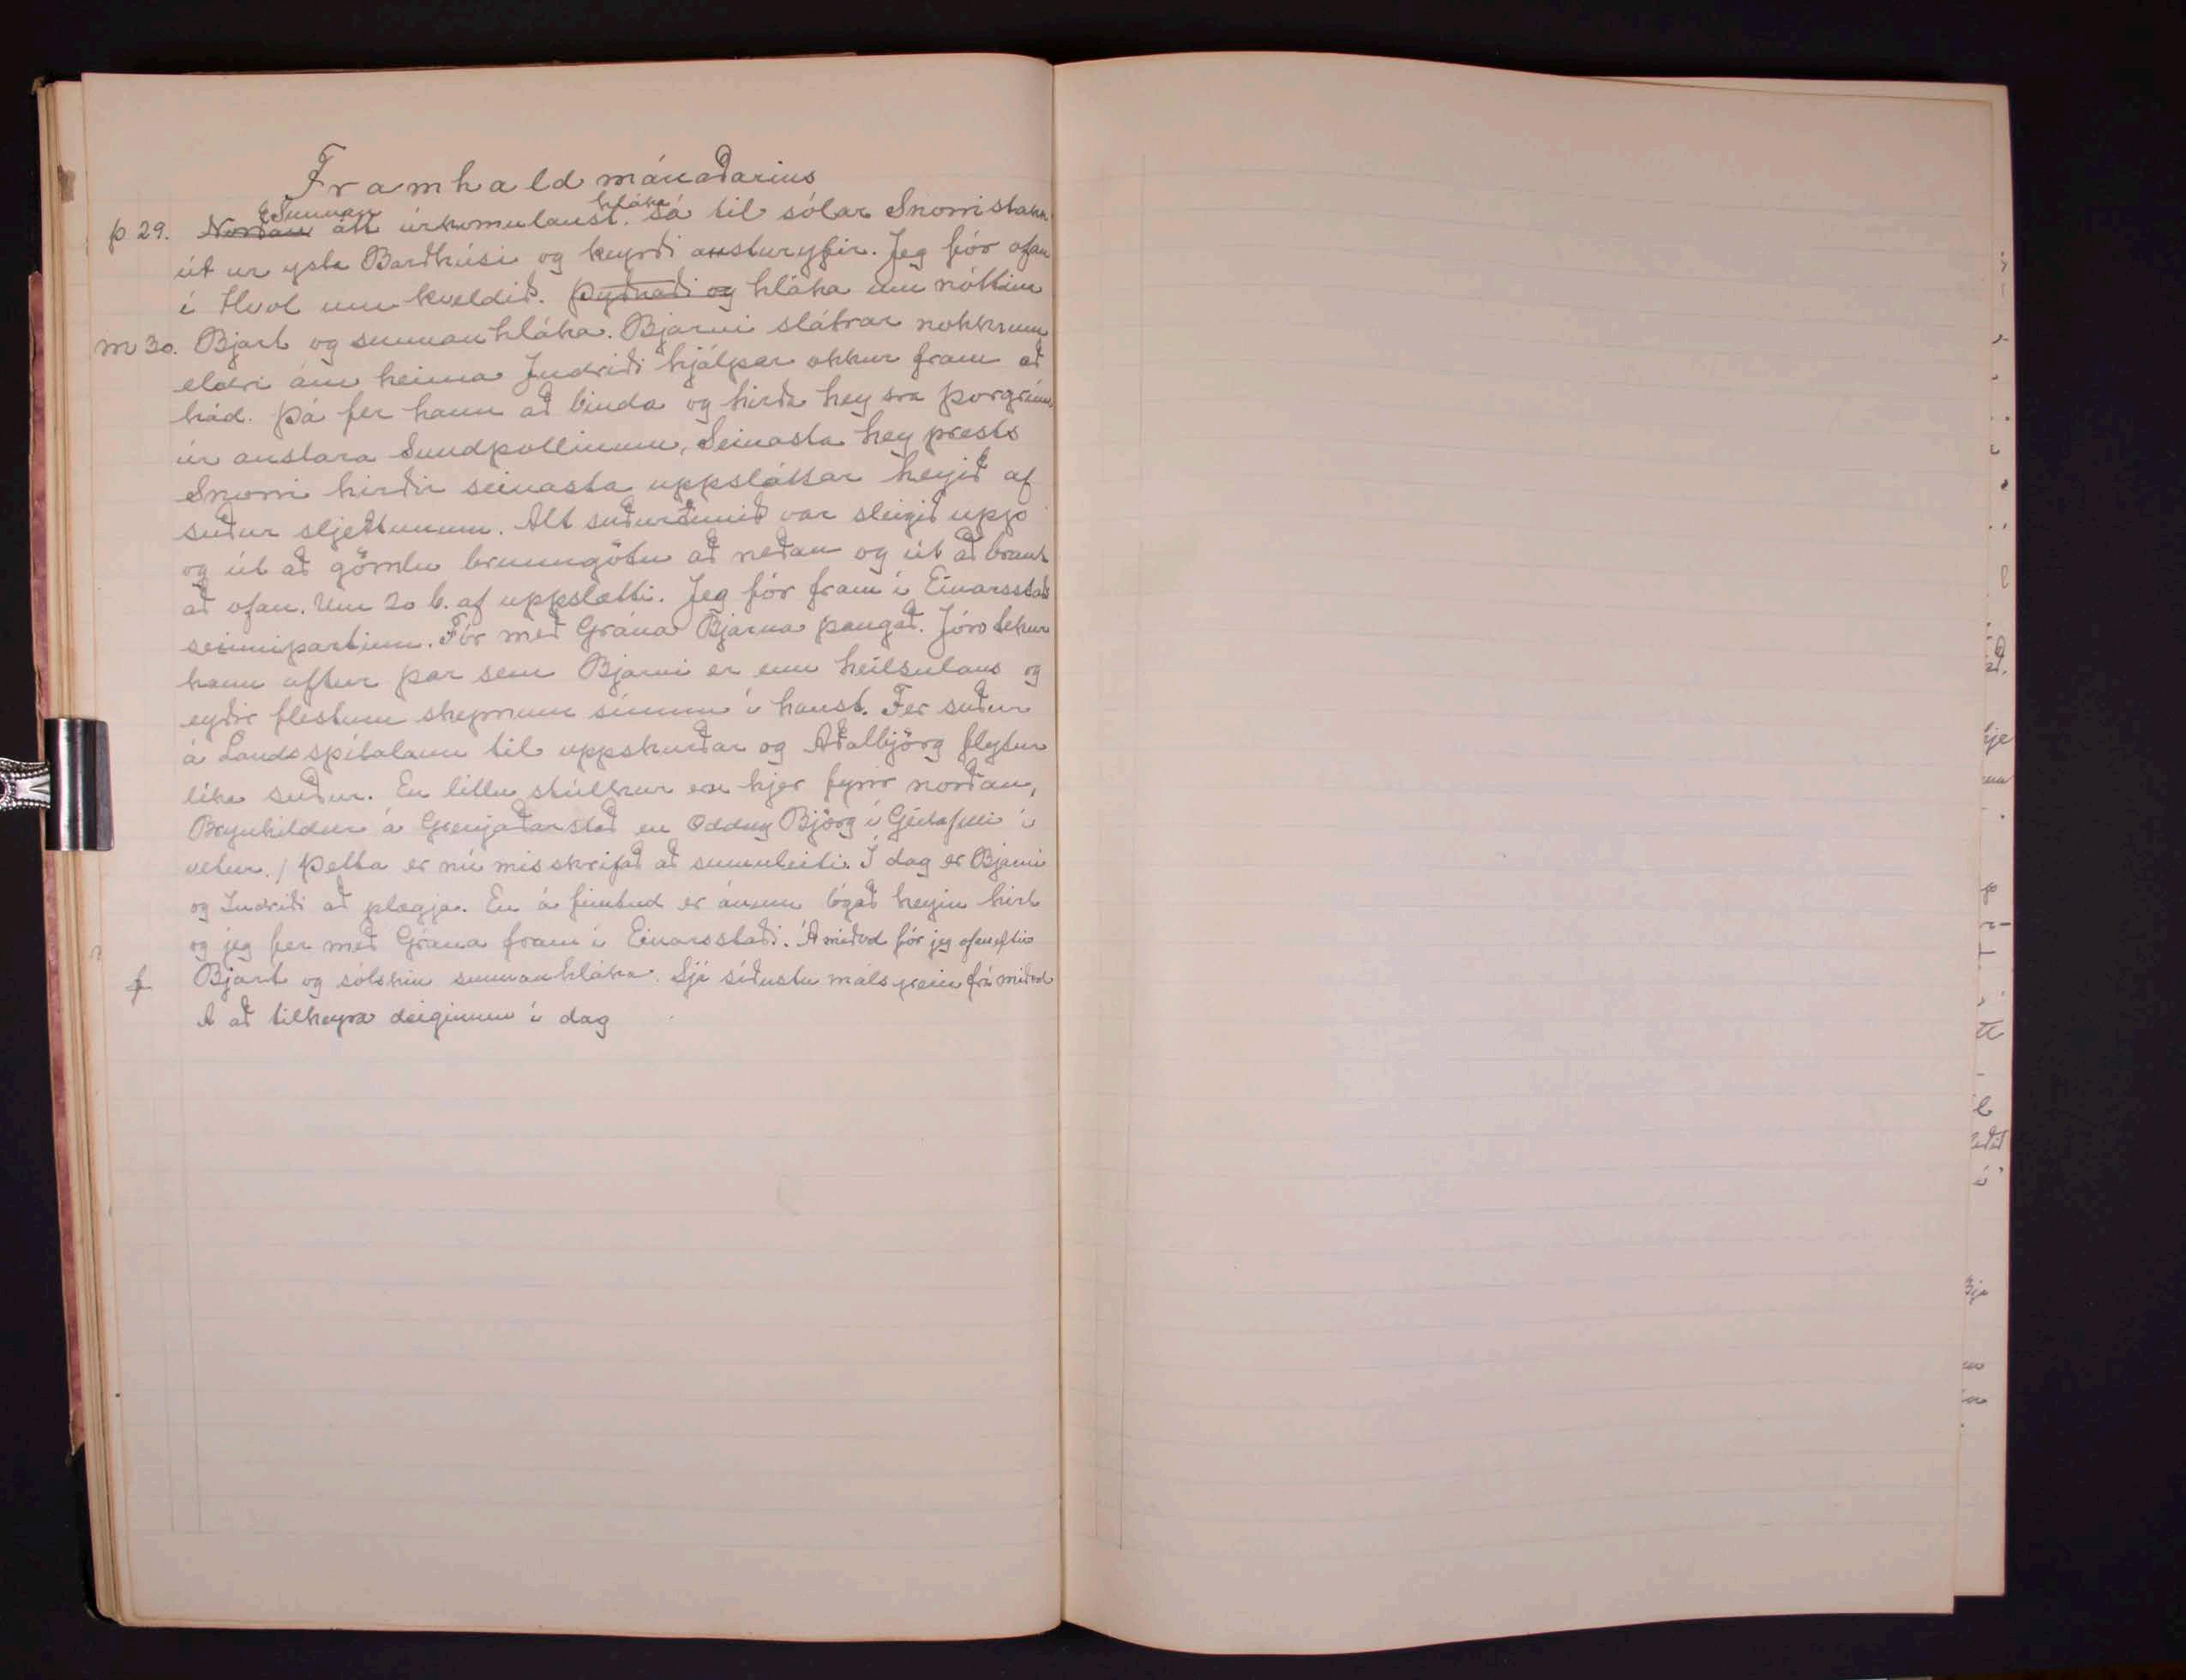 Framhald mánaðarins
þ 29. Norðan Sunnan átt úrkomulaust. hláka Sá til sólar Snorri stakk
út ur ysta Barðhúsi og keyrði austuryfir. Jeg fór ofan
í Hvol um kveldið. Þyðnaði og hláka um nóttina
m 30. Bjart og sunnan hláka. Bjarni slátrar nokkrum
eldri ám heima Indriði hjálpar okkur fram að
hád. Þá fer hann að binda og hirða hey sra Þorgríms
úr austara Sundpollinum, Seinasta hey prests
Snorri hirðir seinasta uppsláttar heyið af
suður sljettunum. Alt suðurtúnið var sleigið upp
og út að gömlu brunngötu að neðan og út að braut
að ofan. Um 20 b. af uppslætti. Jeg fór fram í Einarsstaði
seinnipartinn. Fór með Grána Bjarna þangað. Jón tekur
hann aftur þar sem Bjarni er enn heilsulaus og
eyðir flestum skepnum sínum í haust. Fer suður
á Landsspítalann til uppskurðar og Aðalbjörg flytur
líka suður. En litlu stúlkur eru hjer fyrir norðan,
Brynhildur á Grenjaðarstað en Oddny Björg í Geitafelli í
vetur. / Þetta er nú misskrifað að sumuleiti. Í dag er Bjarni
og Indriði að plægja. En á fimtud er ánum lógað heyin hirt
og jeg fer með Grána fram í Einarsstaði. Á miðvd fór jeg ofaneftir
f Bjart og sólskin sunnan hláka. Sjá síðustu málsgrein frá miðvd
A að tilheyra deiginum í dag